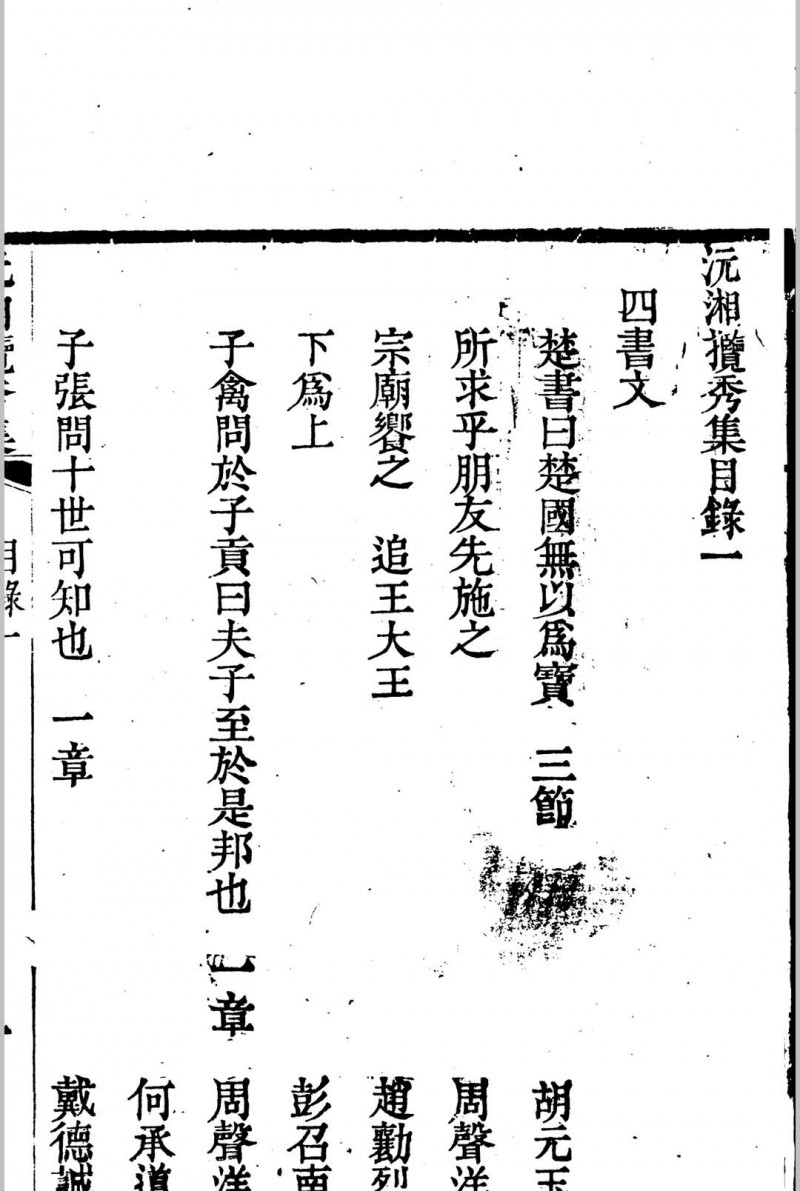 沅湘攬秀集目錄一
四書文
楚書曰楚國無以爲寶　三節　胡元玉
所求乎朋友先施之　周聲洋
宗廟饗之　追王大王　趙勷烈
下爲上　彭召南
子禽問於子貢曰夫子至於是邦也　一章　周聲洋
何承道
子張問十世可知也　一章　戴德誠
目錄一